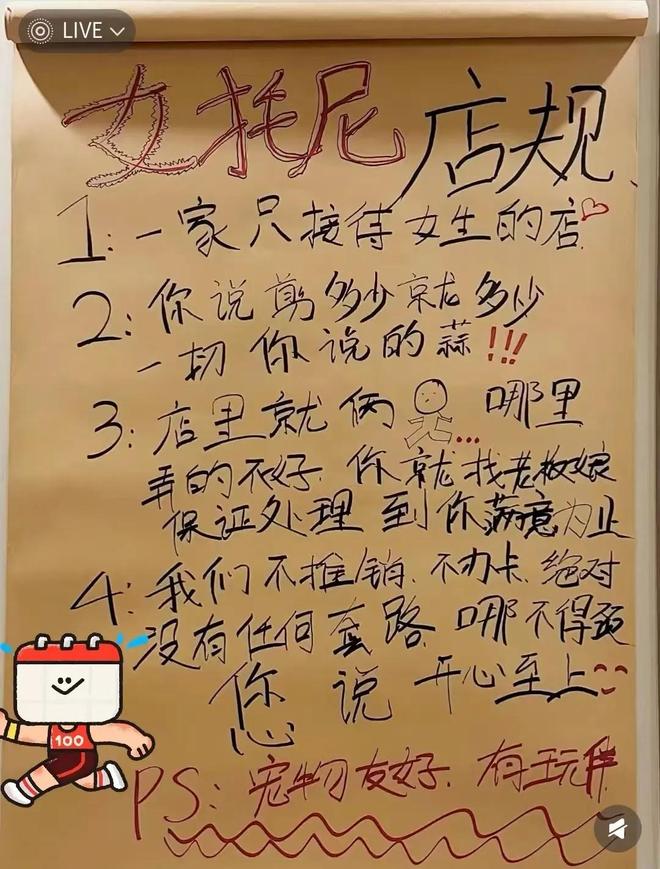 LIVE
女托尼店规
1: 一家只接待女生的店
2: 你说剪多少就多少
一切你说的蒜!!!
3: 店里就俩 ... 哪里
弄的不好.你就找老板娘
保证处理到你满意为止
4: 我们不推销.不办卡.绝对
没有任何套路.哪不得劲
您说 开心至上
100
PS: 宠物友好.有玩伴